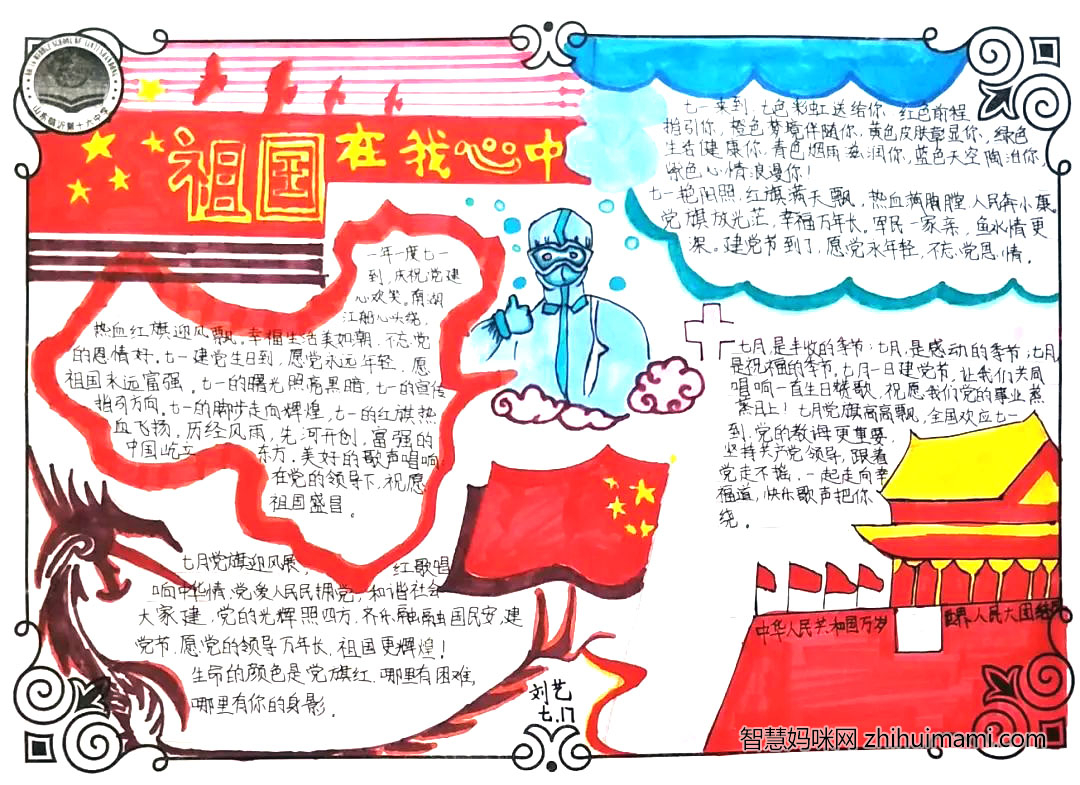 山东临沂第十六中学
祖国在我心中
七一来到,七色彩虹送给你,红色前程
指引你,橙色梦境伴随你,黄色皮肤彰显你,绿色
生活健康你,青色烟雨滋润你,蓝色天空陶冶你,
紫色心情浪漫你!
七一艳阳照,红旗满天飘,热血满胸膛,人民奔小康
党旗放光芒,幸福万年长。军民一家亲,鱼水情更
深。建党节到了,愿党永年轻,不忘党恩情。
一年一度七一
到,庆祝党建
心欢笑。南湖
江船心头绕,
热血红旗迎风飘。幸福生活美如朝,不忘党
的恩情好。七一建党生日到,愿党永远年轻,愿
祖国永远富强。七一的曙光照亮黑暗,七一的宣传
指引方向。七一的脚步走向辉煌,七一的红旗热
血飞扬。历经风雨,先河开创,富强的
中国屹立东方。美好的歌声唱响
在党的领导下,祝愿
祖国盛昌。
七月,是丰收的季节;七月,是感动的季节;七月
是祝福的季节。七月一日建党节,让我们共同
唱响一直生日赞歌,祝愿我们党的事业蒸
蒸日上!七月党旗高高飘,全国欢应七一
到,党的教诲更重要,
坚持共产党领导,跟着
党走不摇,一起走向幸
福道,快乐歌声把你
绕。
七月党旗迎风展,红歌唱
响中华情,党爱人民民拥党,和谐社会
大家建,党的光辉照四方,齐乐融融国民安,建
党节,愿党的领导万年长,祖国更辉煌!
生命的颜色是党旗红,哪里有困难,
哪里有你的身影。
中华人民共和国万岁
世界人民大团结
刘艺
七.17
智慧妈咪网 zhihuimami.com